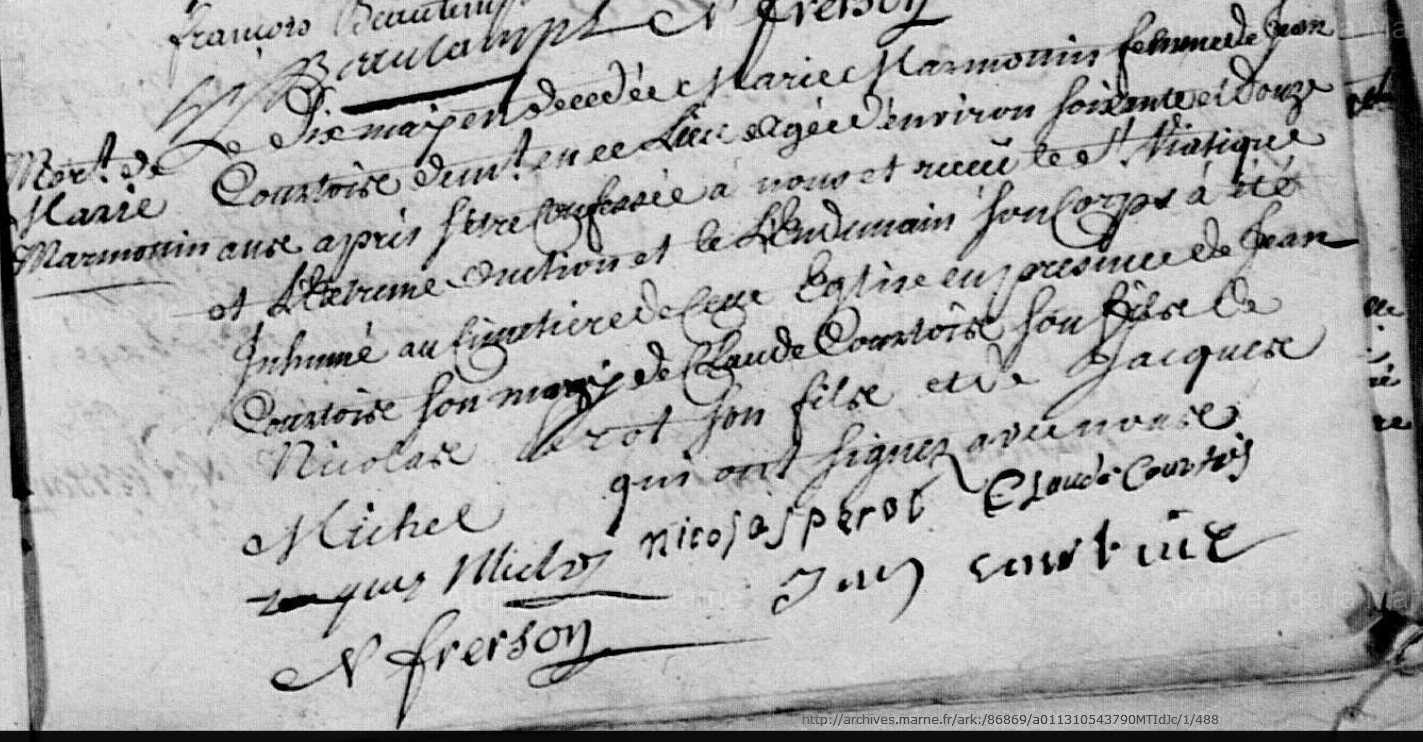 françois Beautemps
Beautampt N frerson
Mort. de
Marie
Marmonin
Le dixe may en decedée Marie Marmonin femme de Jean
Courtoise demt. en ce Lieu agée d'environ soixante et douze
anse apres s'etre confessée a nous et receu le St. Viatique
et L'extreme onction et le Lendemain son corps à été
Inhumé au cimetiere de cette Eglise en presence de Jean
Courtoise son mary de Claude Courtoise son filse de
Nicolase perot son filse et de Jacquese
Michel qui ont signez avec nouse
Michel nicolas perot Claude Courtois
N frerson
http://archives.marne.fr/ark:/86869/a011310543790MTIdJc/1/488